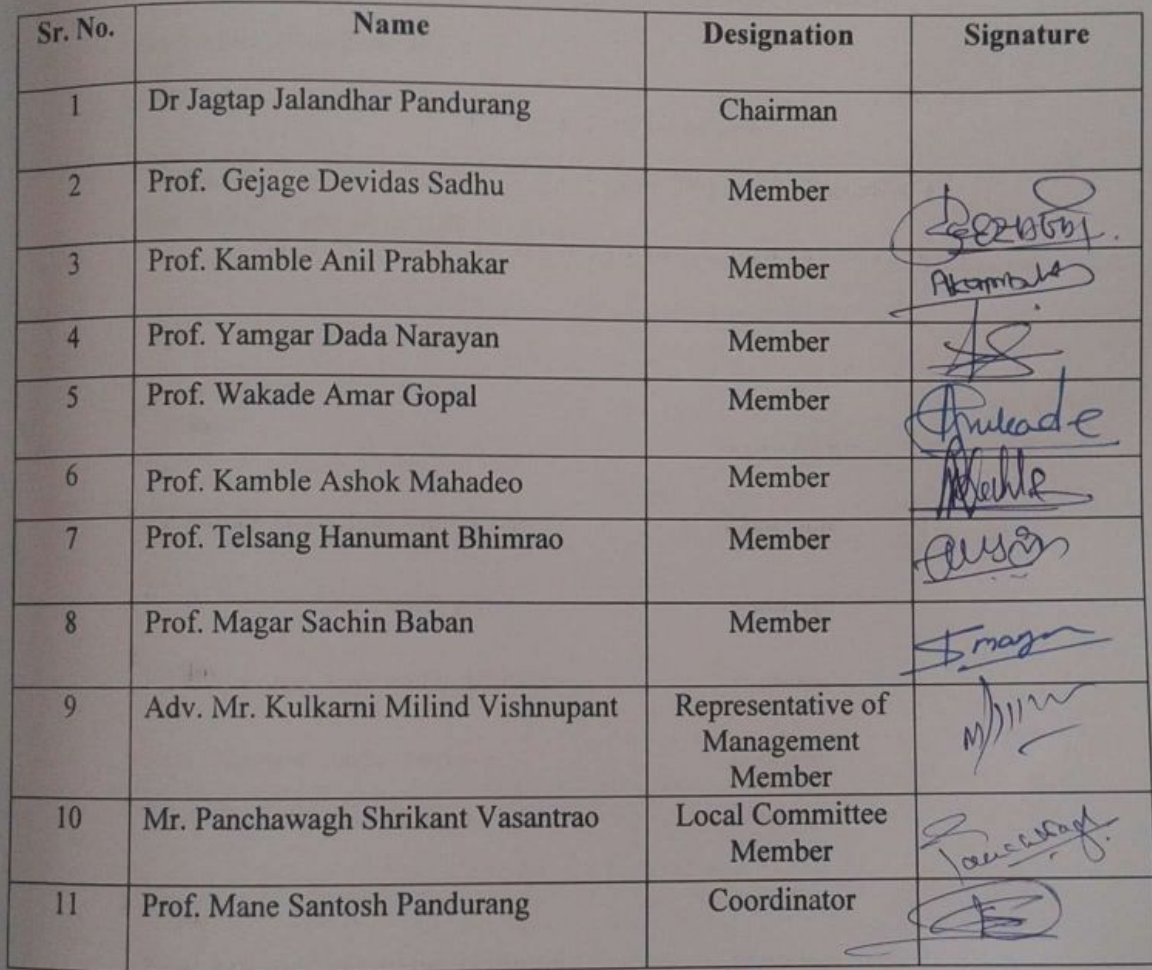 Sr. No. Name Designation Signature
1 Dr Jagtap Jalandhar Pandurang Chairman
2 Prof. Gejage Devidas Sadhu Member
3 Prof. Kamble Anil Prabhakar Member Akamble
4 Prof. Yamgar Dada Narayan Member
5 Prof. Wakade Amar Gopal Member
6 Prof. Kamble Ashok Mahadeo Member
7 Prof. Telsang Hanumant Bhimrao Member
8 Prof. Magar Sachin Baban Member
9 Adv. Mr. Kulkarni Milind Vishnupant Representative of
Management
Member
10 Mr. Panchawagh Shrikant Vasantrao Local Committee
Member
11 Prof. Mane Santosh Pandurang Coordinator